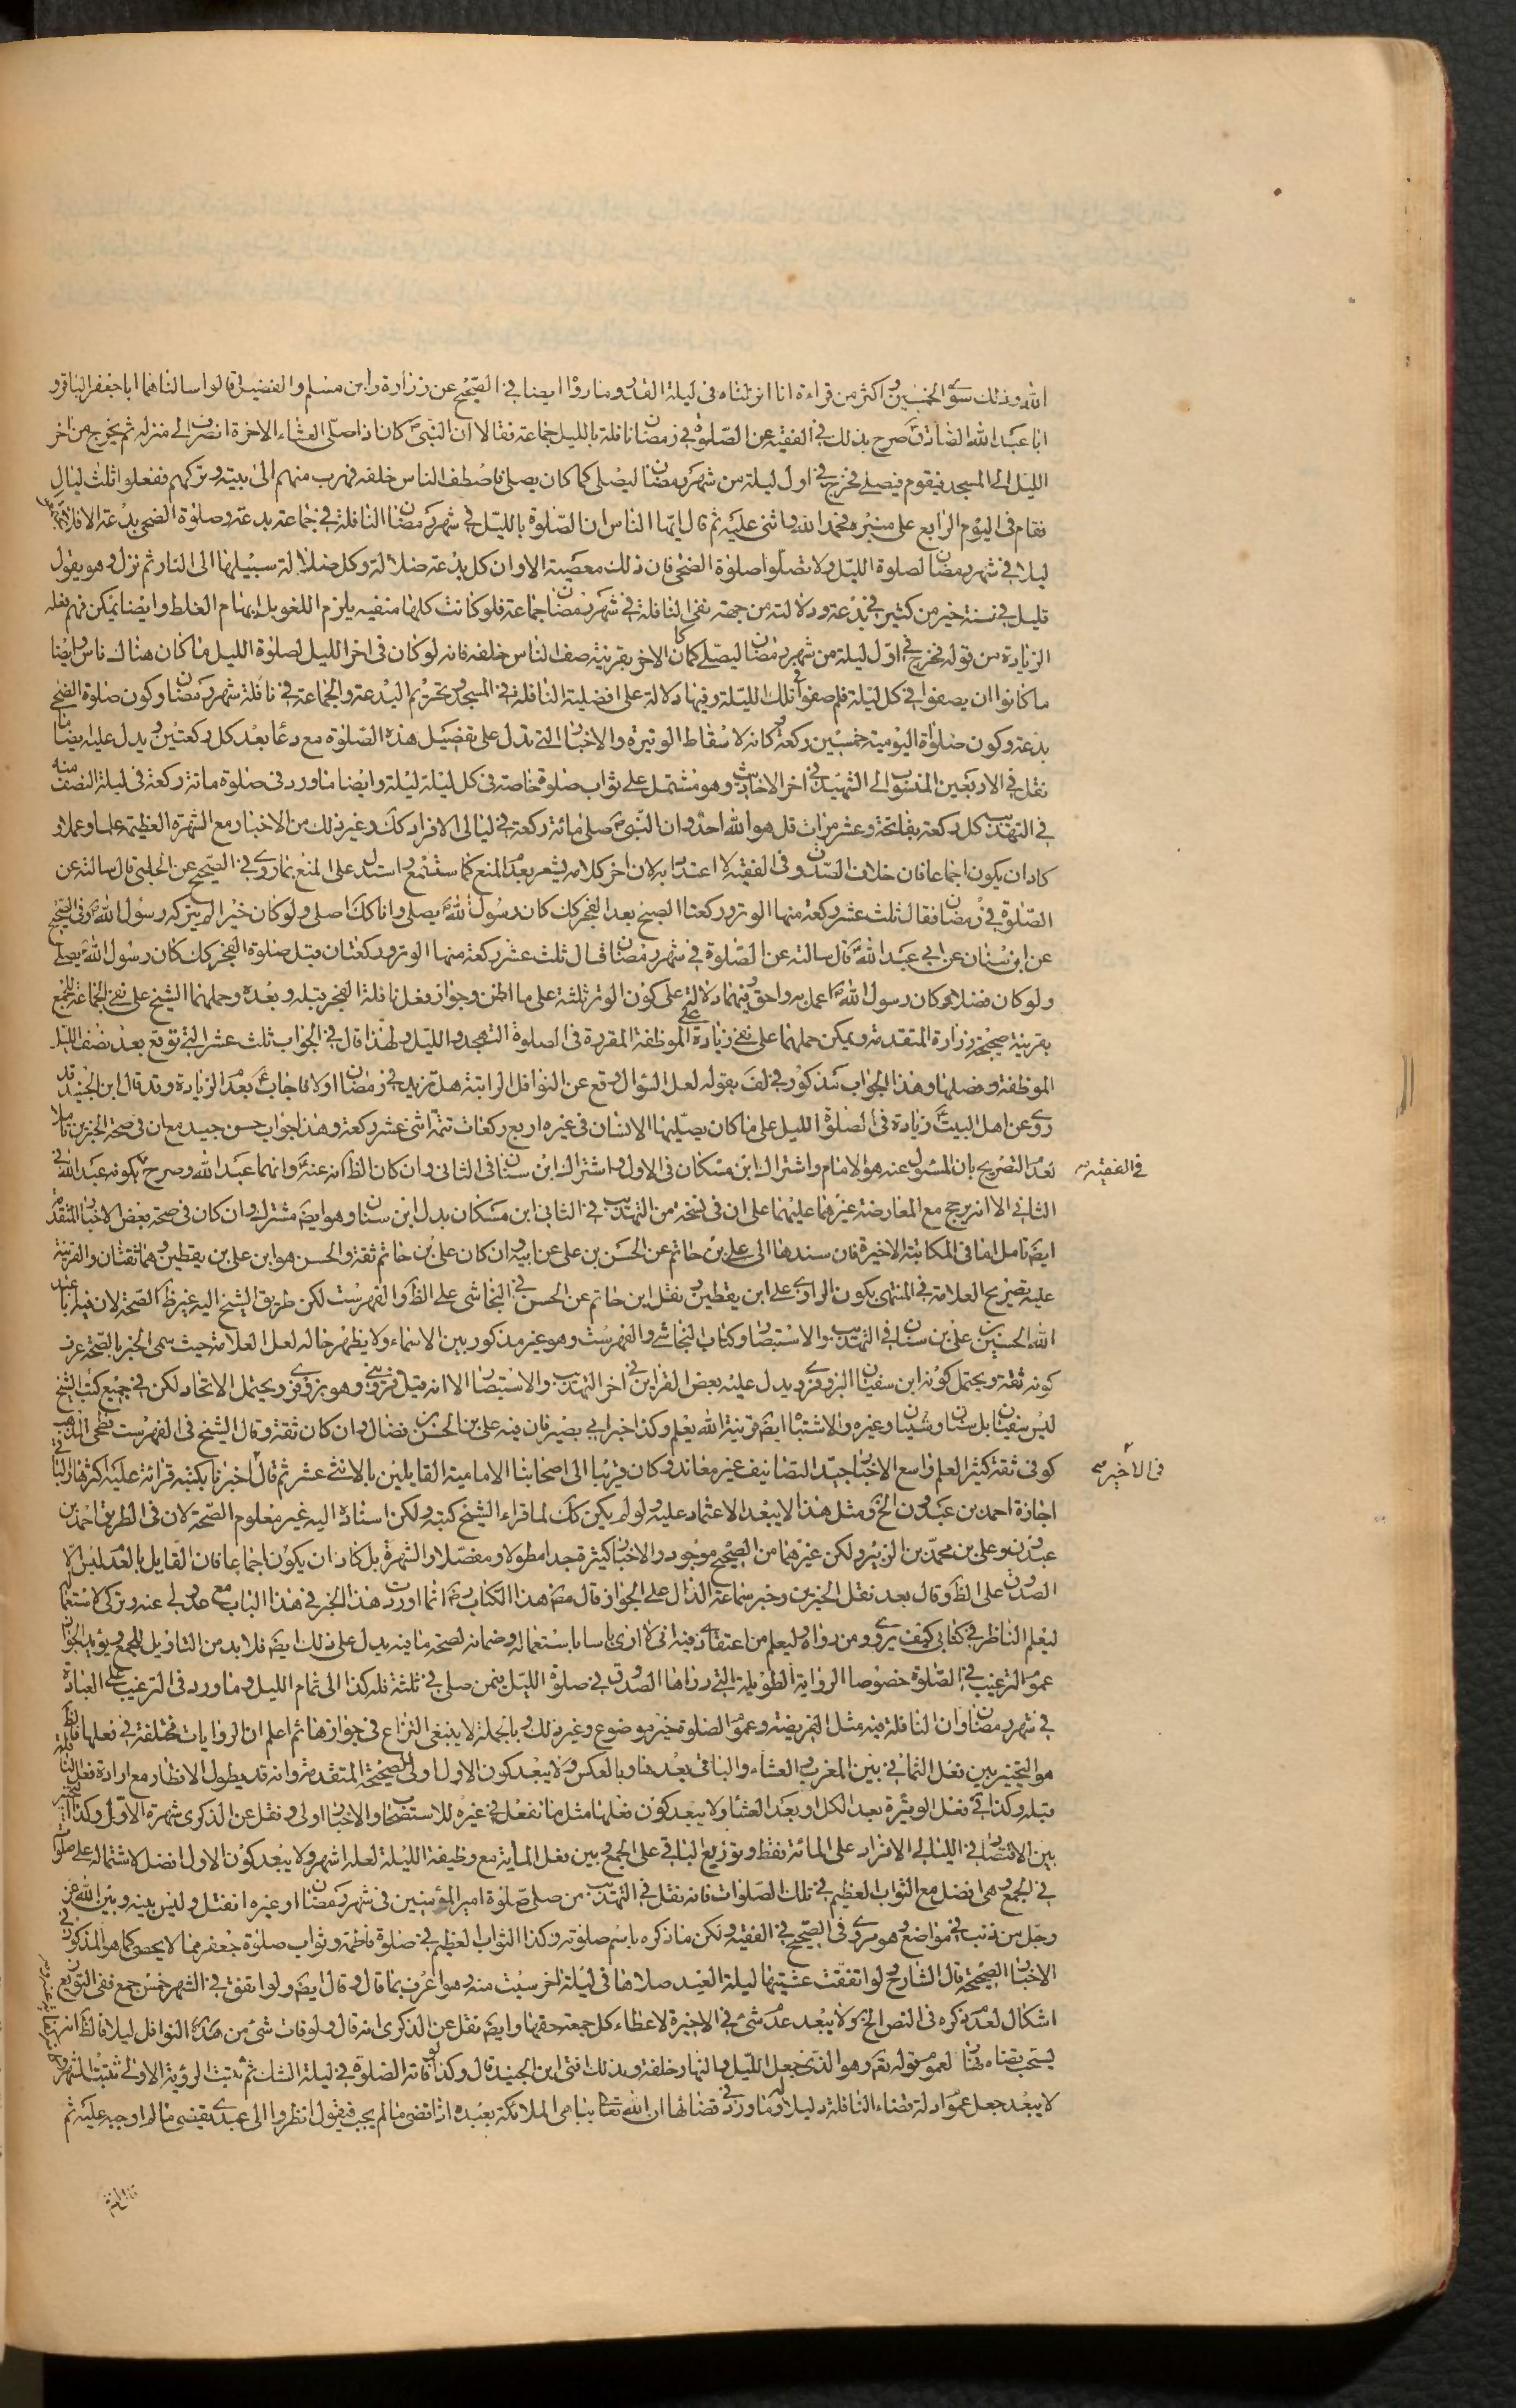 الله وذلك سوى الخمسين واكثر من قراءة انا انزلناه فى ليلة القدر وما رووا ايضا فى الصحيح عن زرارة وابن مسلم والفضيل قالوا سالناهما ابا جعفر الباقر و
ابا عبد الله الصادق صرح بذلك فى الفقيه عن الصلوة فى رمضان نافلة بالليل جماعة فقالا ان النبى كان اذا صلى العشاء الاخرة انصرف الى منزله ثم يخرج من اخر
الليل الى المسجد فيقوم فيصلى فخرج فى اول ليلة من شهر رمضان ليصلى كما كان يصلى فاصطف الناس خلفه فهرب منهم الى بيته وتركهم ففعلوا ثلث ليال
فقام فى اليوم الرابع على منبره فحمد الله واثنى عليه ثم قال ايها الناس ان الصلوة بالليل فى شهر رمضان النافلة فى جماعة بدعة وصلوة الضحى بدعة الا فلا تجتمعوا
ليلا فى شهر رمضان لصلوة الليل ولا تصلوا صلوة الضحى فان ذلك معصية الا وان كل بدعة ضلالة وكل ضلالة سبيلها الى النار ثم نزل وهو يقول
قليل فى سنة خير من كثير فى بدعة ودلالته من جهة نفى النافلة فى شهر رمضان جماعة فلو كانت كلها منفيه يلزم اللغو بل ايهام الغلط وايضا يمكن فهم فعله
الزيادة من قوله فخرج فى اول ليلة من شهر رمضان ليصلى كما كان الاخر بقرينة صف الناس خلفه فانه لو كان فى اخر الليل لصلوة الليل ما كان هناك ناس وايضا
ما كانوا ان يصفوا فى كل ليلة فلم صفوا فى تلك الليلة وفيها دلالة على افضلية النافلة فى المسجد وتحريم البدعة والجماعة فى نافلة شهر رمضان وكون صلوة الضحى
بدعة وكون صلوة اليومية خمسين ركعة وكانه لاسقاط الوتيرة والاخبار التى تدل على تفضيل هذه الصلوة مع دعا بعد كل ركعتين ويدل عليه ايضا ما
نقل فى الاربعين المنسوب الى الشهيد فى اخر الاحاديث وهو مشتمل على ثواب صلوة خاصة فى كل ليلة ليلة وايضا ما ورد فى صلوة مائة ركعة فى ليلة النصف منه
فى التهذيب كل ركعة بفاتحة وعشر مرات قل هو الله احد وان النبى صلى مائة ركعة فى ليالى الافراد كك وغير ذلك من الاخبار مع الشهرة العظيمة علما وعملا و
كاد ان يكون اجماعا فان خلاف الصدوق فى الفقيه لا اعتداد به لان اخر كلامه يشعر بعدم المنع كما ستسمع واستدل على المنع بما روى فى الصحيح عن الحلبى قال سالته عن
الصلوة فى رمضان فقال ثلث عشر ركعة منها الوتر وركعتا الصبح بعد الفجر كك كان رسول الله يصلى وانا كك اصلى ولو كان خيرا لم يتركه رسول الله وفى الصحيح
عن ابن سنان عن ابى عبد الله قال سالته عن الصلوة فى شهر رمضان قال ثلث عشر ركعة منها الوتر وركعتان قبل صلوة الفجر كك كان رسول الله يصلى
ولو كان فضلا كان رسول الله اعمل به واحق وفيهما دلالة على كون الوتر ثلثة على ما اظن وجواز فعل نافلة الفجر قبله وبعده وحملهما الشيخ على نفى الجماعة للجمع
بقرينة صحيحة زرارة المتقدمة ويمكن حملهما على نفى زيادة على الموظفة المقررة فى الصلوة التهجد والليل ولهذا قال فى الجواب ثلث عشر التى توقع بعد نصف الليل
الموظفة وفضلها وهذا الجواب مذكور فى لف بقوله لعل السؤال وقع عن النوافل الراتبة هل تزيد فى رمضان اولا فاجاب بعدم الزيادة وقد قال ابن الجنيد قد
روى عن اهل البيت زيادة فى الصلوة الليل على ما كان يصليها الانسان فى غيره اربع ركعات تتمة اثنى عشر ركعة وهذا جواب حسن جيد مع ان فى صحة الخبرين تاملا
لعدم التصريح بان المسئول عنه هو الامام واشتراك ابن مسكان فى الاول واشتراك ابن سنان فى الثانى وان كان الظ انه عنه وانهما عبد الله وصرح بكونه عبد الله فى
فى الفقيه
الثانى الا انه يرجح مع المعارضة غيرهما عليهما على ان فى نسخة من التهذيب فى الثانى ابن مسكان بدل ابن سنان وهو ايض مشترك وان كان فى صحة بعض الاخبار المتقدمة
ايض تامل اما فى المكاتبة الاخيرة فان سندها الى على بن حاتم عن الحسن بن على عن ابيه وان كان على بن حاتم ثقة والحسن هو ابن على بن يقطين وهما ثقتان والقرينة
عليه تصريح العلامة فى المنتهى بكون الراوى على ابن يقطين ونقل ابن حاتم عن الحسن فى النجاشى على الظ والفهرست لكن طريق الشيخ اليه غير ظ الصحة لان فيه ابا عبد
الله الحسين بن على بن سنان فى التهذيب والاستبصار وكتاب النجاشى والفهرست وهو غير مذكور بين الاسماء ولا يظهر حاله لعل العلامة حيث سمى الخبر بالصحة عرف
كونه ثقة ويحتمل كونه ابن سفيان البزوفرى ويدل عليه بعض القراين فى اخر التهذيب والاستبصار الا انه قيل قزوينى وهو بزوفرى ويحتمل الاتحاد لكن فى جميع كتب الشيخ
ليس سفيان بل سنان وشيبان وغيره والاشتباه ايض قرينة الله يعلم وكذا خبر ابى بصير فان فيه على بن الحسن بن فضال وان كان ثقة وقال الشيخ فى الفهرست فطحى المذهب
كوفى ثقة كثير العلم واسع الاخبار جيد التصانيف غير معاند وكان قريبا الى اصحابنا الامامية القايلين بالاثنى عشر ثم قال اخبرنا بكتبه قراءة عليه اكثرها والباقى
فى الاخير
اجازة احمد بن عبدون الخ ومثل هذا لا يبعد الاعتماد عليه ولو لم يكن كك لما قراء الشيخ كتبه ولكن اسناده اليه غير معلوم الصحة لان فى الطريق احمد بن
عبدون وعلى بن محمد بن الزبير ولكن غيرهما من الصحيح موجود والاخبار كثيرة جدا مطولا ومفصلا والشهرة بل كاد ان يكون اجماعا فان القايل بالعدم ليس الا
الصدوق على الظ وقال بعد نقل الخبرين وخبر سماعة الدال على الجواز قال مص هذا الكتاب ره انما اوردت هذا الخبر فى هذا الباب مع عدولى عنه وتركى لاستعماله
ليعلم الناظر فى كتابى كيف يروى ومن رواه وليعلم من اعتقادى فيه انى لا ارى باسا باستعماله وضمانه لصحة ما فيه يدل على ذلك ايض فلا بد من التاويل للجمع ويؤيد الجواز
عموم الترغيب فى الصلوة خصوصا الرواية الطويلة التى رواها الصدوق فى صلوة الليل فيمن صلى فى ثلثة فله كذا الى تمام الليل وما ورد فى الترغيب على العبادة
فى شهر رمضان وان النافلة فيه مثل الفريضة وعموم الصلوة خير موضوع وغير ذلك وبالجملة لا ينبغى النزاع فى جوازها ثم اعلم ان الروايات مختلفة فى فعلها فالظ
هو التخيير بين فعل الثمانى بين المغرب والعشاء والباقى بعدها وبالعكس ولا يبعد كون الاول اولى للصحيحة المتقدمة وانه قد يطول الانتظار مع ارادة فعل النافلة
قبله وكذا فى فعل الوتيرة بعد الكل او بعد العشاء ولا يبعد كون فعلها مثل ما تفعل فى غيره للاستصحاب والاخبار اولى ونقل عن الذكرى شهرة الاول وكذا التخيير
بين الاقتصار فى الليالى الافراد على المائة فقط وتوزيع الباقى على الجمع وبين فعل المأية مع وظيفة الليلة لعله اشهر ولا يبعد كون الاول افضل لاشتماله على صلوات
فى الجمع وهى افضل مع الثواب العظيم فى تلك الصلوات فانه نقل فى التهذيب من صلى صلوة امير المؤمنين فى شهر رمضان او غيره انفتل وليس بينه وبين الله عز
وجل من ذنب فى مواضع وهو مروى فى الصحيح فى الفقيه ولكن ما ذكره باسم صلوته وكذا الثواب العظيم فى صلوة فاطمة وثواب صلوة جعفر مما لا يحصى كما هو المذكور فى
الاخبار الصحيحة قال الشارح ولو اتفقت عشيتها ليلة العيد صلاها فى ليلة اخر سبت منه وهو اعرف بما قال وقال ايض ولو اتفق فى الشهر خمس جمع ففى التوزيع
اشكال لعدم ذكره فى النص الخ ولا يبعد عدم شئ فى الاخيرة لاعطاء كل جمعة حقها وايض نقل عن الذكرى انه قال ولو فات شئ من هذه النوافل ليلا فالظ انه
يستحب قضاءه نهارا لعموم قوله تع وهو الذى جعل الليل والنهار خلفة وبذلك افتى ابن الجنيد قال وكذا لو فاته الصلوة فى ليلة الشك ثم ثبتت الرؤية الاولى تثبت الشهر و
لا يبعد جعل عموم ادلة قضاء النافلة دليلا له وما ورد فى قضائها ان الله تعالى يباهى الملائكة بعبده اذا قضى ما لم يجب فيقول انظروا الى عبدى يقضى ما لم اوجبه عليه ثم